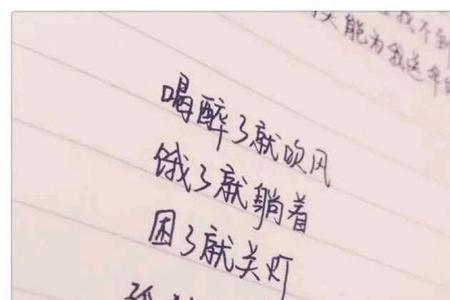 能为我送伞
喝醉了就吹风
饿了就躺着
困了就关灯